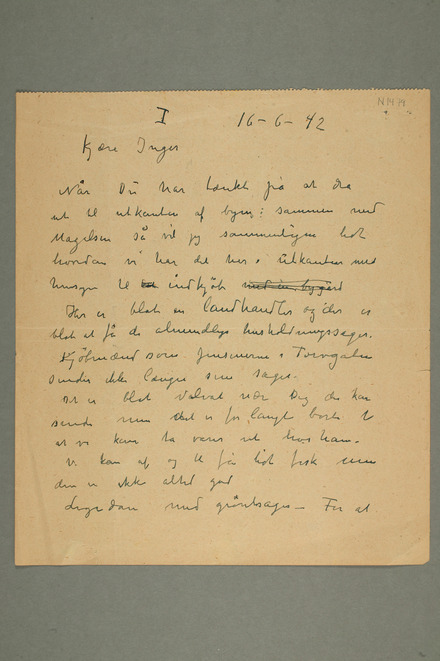 N 1414
I 16-6-42
Kjære Inger
Når Du har tænkt på at dra
ut til utkanten af byen: sammen med
Magelsen så vil jeg sammenligne lidt
hvordan vi har det her i utkanten med
hensyn til indkjöb
Her er blot en landhandler og der er
blot at få de almindelige husholdningssager.
Kjöbmænd som i Torvgaten
sender ikke længer sine sager.
Det er blot nær Dig der kan
sende men det er for langt borte til
at vi kan ta varer ut hos ham.
Vi kan af og til få lidt fisk men
den er ikke altid god
Ligedan med grönsager - For at